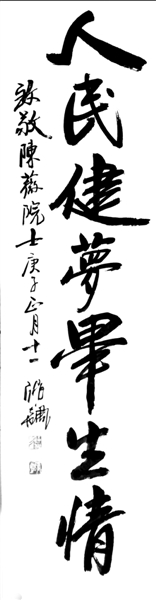 人民健夢畢生情
致敬陳薇院士庚子正月十一